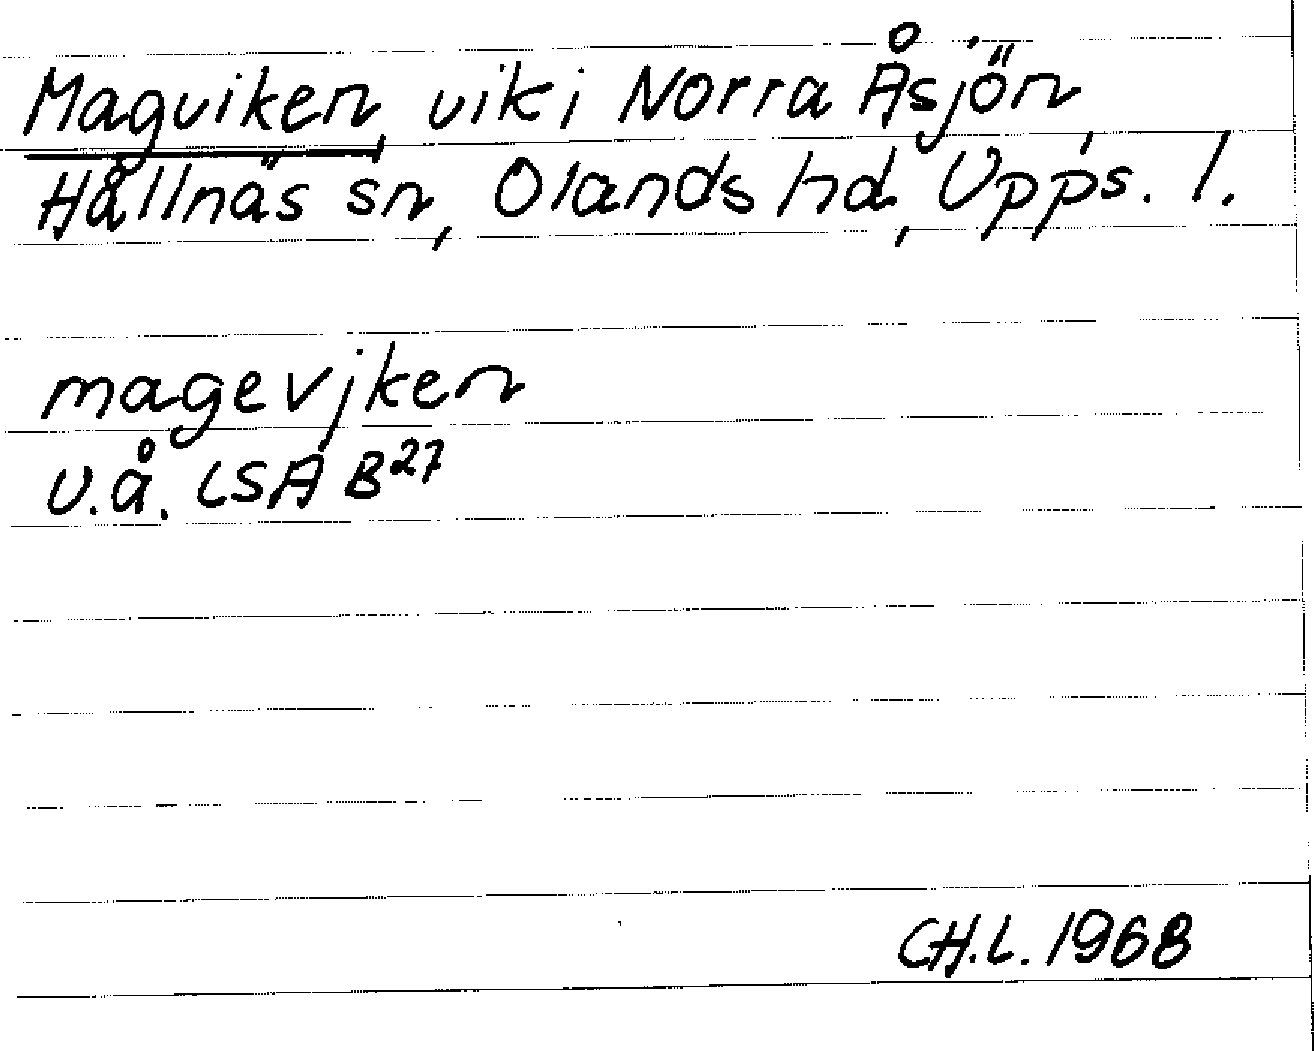 Magviken, vik i Norra Åsjön,
Hållnäs sn, Olands hd, Upps. l.
magevjken
U.å. LSA B27
CH.L. 1968